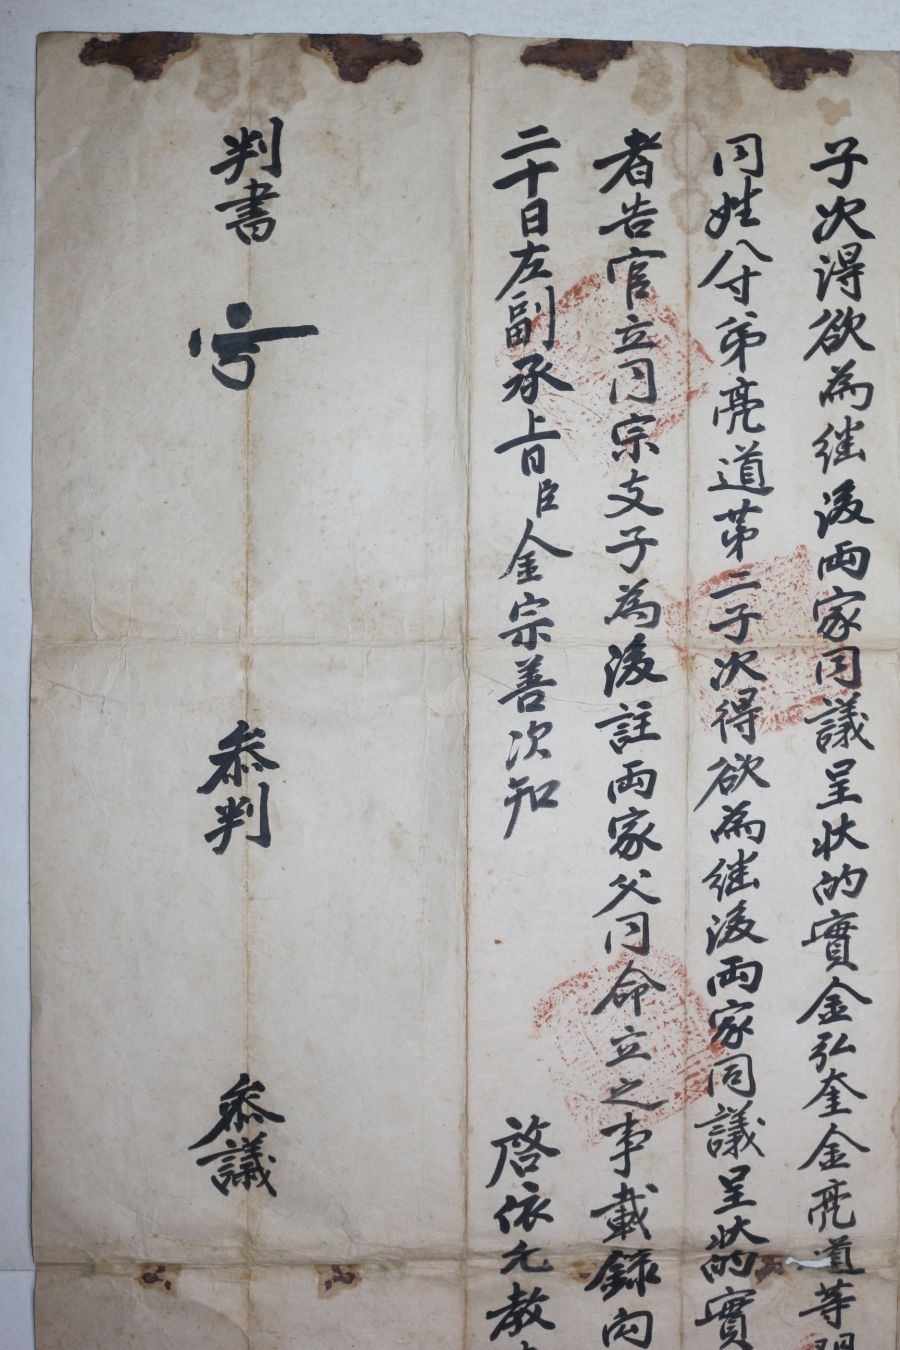 子次淂欲為継後両家同議呈状的實金弘奎金亮道等
同姓八寸弟亮道苐二子次得欲為継後両家同議呈状的實
者告官立同宗支子為後註両家父同命立之事載錄內
二十日左副承旨臣金宗善次知 啓依允教
判書 參判 參議